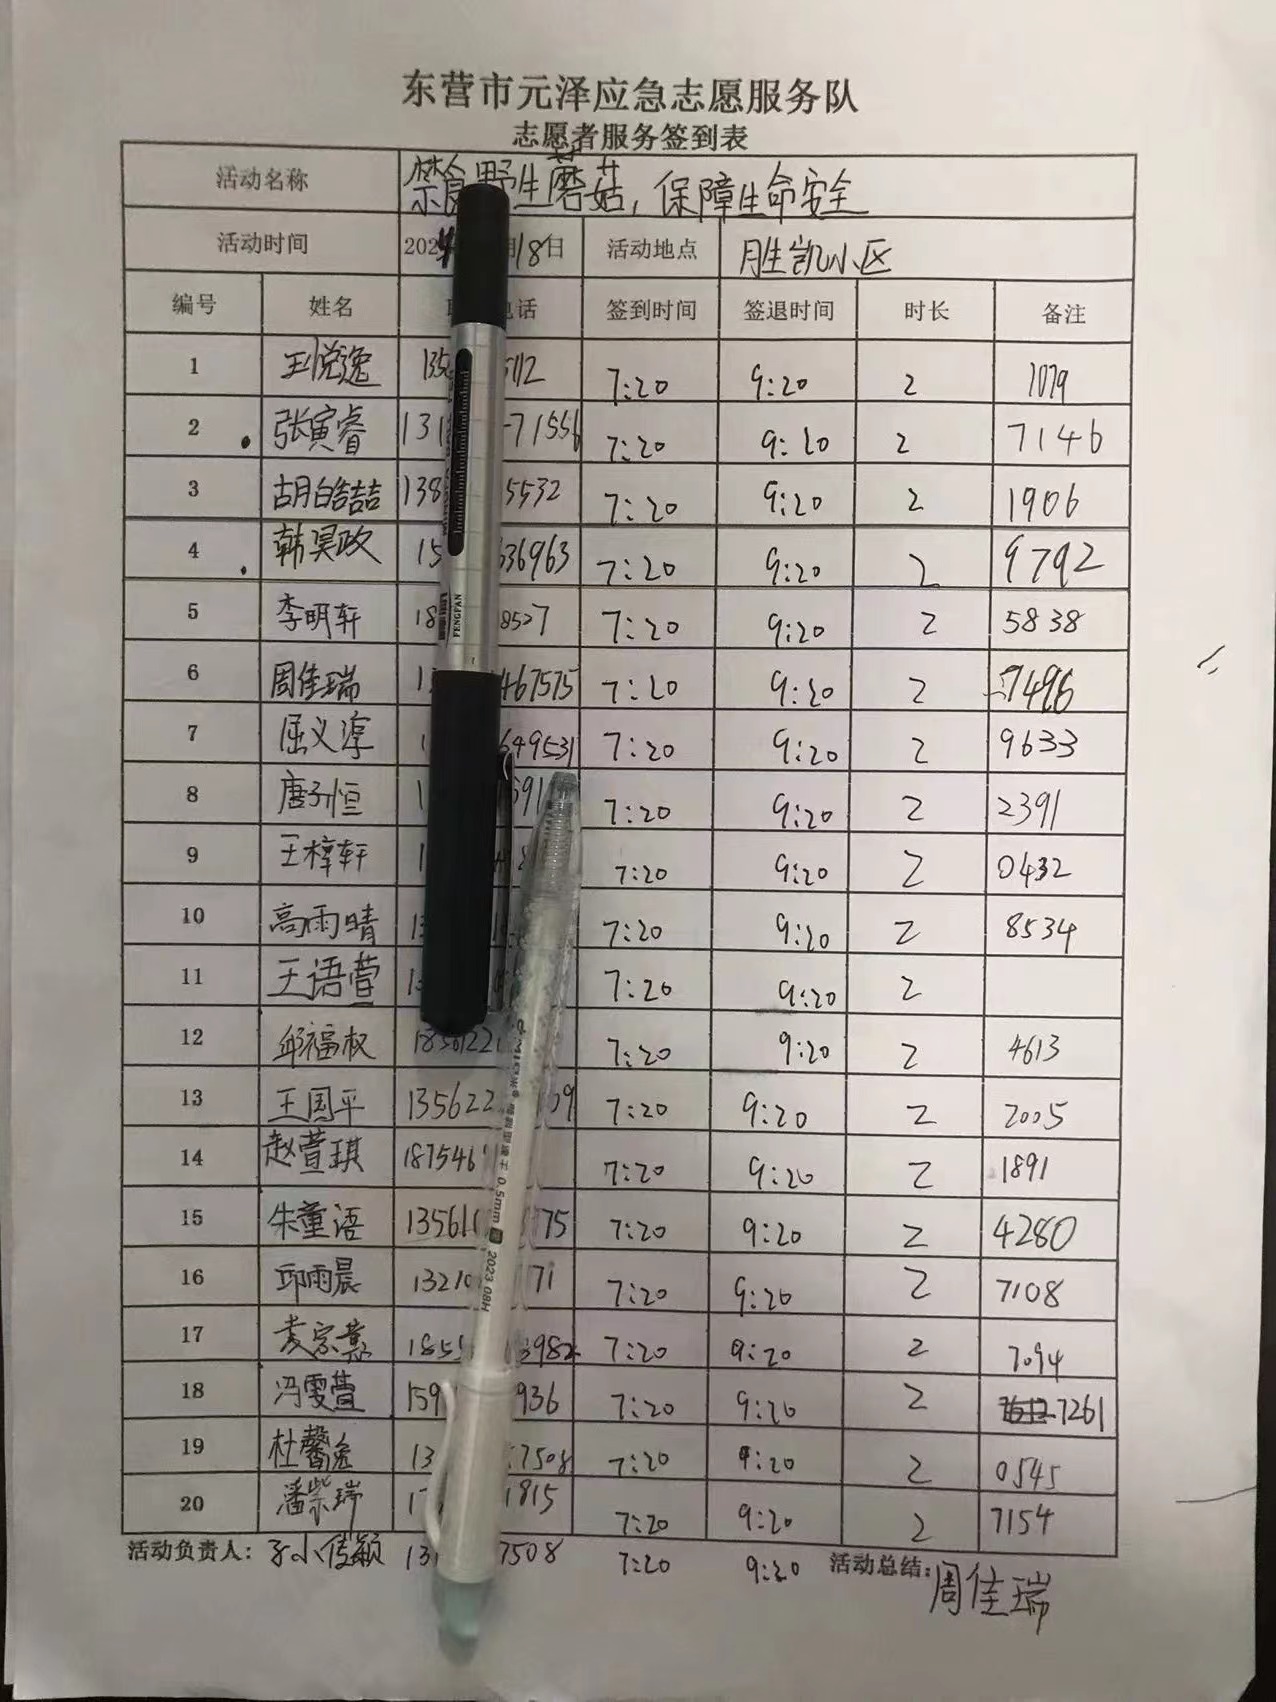 东营市元泽应急志愿服务队
志愿者服务签到表
活动名称 禁食野生蘑菇，保障生命安全
活动时间 202 月18日 活动地点 胜凯小区
编号 姓名 电话 签到时间 签退时间 时长 备注
1 王悦逸 135 5112 7:20 9:20 2 1079
2 张寅睿 131 -71556 7:20 9:20 2 7146
3 胡皓喆 138 5532 7:20 9:20 2 1906
4 韩昊政 15 636963 7:20 9:20 2 9792
5 李明轩 18 8527 7:20 9:20 2 5838
6 周佳瑞 1 467575 7:20 9:20 2 7496
7 屈义淳 1 649531 7:20 9:20 2 9633
8 唐子恒 1 591 7:20 9:20 2 2391
9 王樟轩 1 7:20 9:20 2 0432
10 高雨晴 13 7:20 9:20 2 8534
11 王语萱 13 7:20 9:20 2
12 邱福权 1856122 7:20 9:20 2 4613
13 王国平 135622 09 7:20 9:20 2 2005
14 赵萱琪 187546 7:20 9:20 2 1891
15 朱童语 13561 75 7:20 9:20 2 4280
16 邱雨晨 13210 71 7:20 9:20 2 7108
17 袁宗 185 3982 7:20 9:20 2 7094
18 冯雯萱 159 936 7:20 9:20 2 7261
19 杜馨 13 7508 7:20 9:20 2 0545
20 潘紫瑞 1 1815 7:20 9:20 2 7154
活动负责人： 13 7508 7:20 9:20 活动总结：周佳瑞
FENGFAN
0.5mm
2023.08H